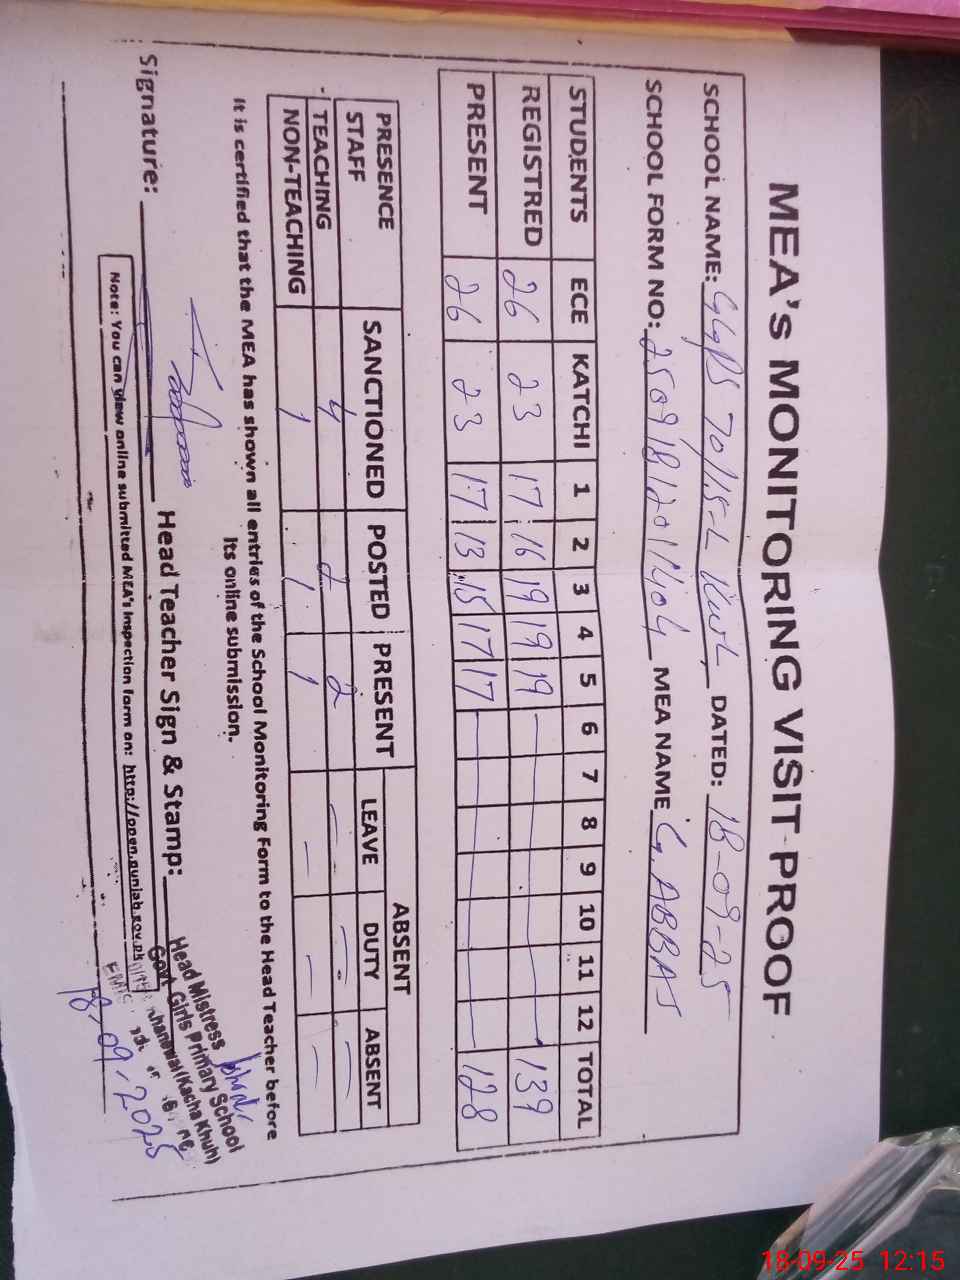 MEA's MONITORING VISIT PROOF
SCHOOL NAME: GGPS 70/15-L DATED: 18-09-25
SCHOOL FORM NO: MEA NAME G. ABBAS
STUDENTS ECE KATCHI 1 2 3 4 5 6 7 8 9 10 11 12 TOTAL
REGISTRED 26 23 17 16 19 19 19 139
PRESENT 26 23 17 13 15 17 17 128
PRESENCE SANCTIONED POSTED PRESENT ABSENT
STAFF LEAVE DUTY ABSENT
TEACHING 4 2 2 - - -
NON-TEACHING 1 1 1 - - -
It is certified that the MEA has shown all entries of the School Monitoring Form to the Head Teacher before
its online submission.
Signature: Head Teacher Sign & Stamp:
Head Mistress
Govt. Girls Primary School
(Kacha Khuh)
EMIS
18-09-2025
Note: You can view online submitted MEA's inspection form on: http://open.punjab.gov.pk
18-09-25 12:15